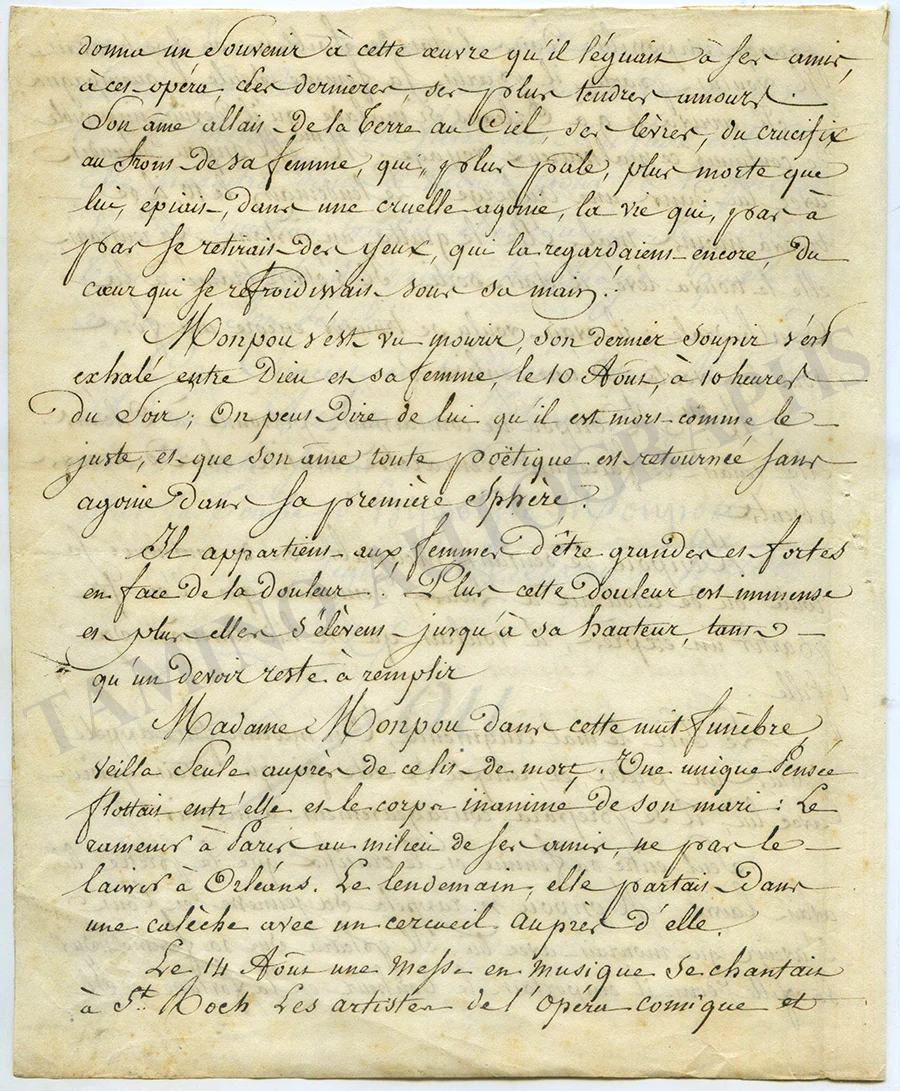 donna un Souvenir à cette œuvre qu'il léguait à ses amis,
à ces opéra, ses dernieres, ses plus tendres amours.
Son âme allait de la Terre au Ciel, ses lèvres, du crucifix
au front de sa femme, qui, plus pale, plus morte que
lui, épiait, dans une cruelle agonie, la vie qui, pas à
pas se retirait des yeux, qui la regardaient encore, du
cœur qui se refroidissait sous sa main!
Monpou s'est vu mourir, son dernier soupir s'est
exhalé entre Dieu et sa femme, le 10 Août, à 10 heures
du Soir; On peut Dire de lui qu'il est mort comme le
juste, et que son âme toute poëtique est retournée sans
agonie dans sa première Sphère.
Il appartient aux femmes d'être grandes et fortes
en face de la douleur! Plus cette douleur est immense
et plus elles s'élèvent jusqu'à sa hauteur, tant
qu'un devoir reste à remplir
Madame Monpou dans cette nuit funèbre,
veilla Seule auprès de ce lit de mort. Une unique Pensée
flottait entr'elle et le corps inanimé de son mari: Le
ramener à Paris au milieu de ses amis, ne pas le
laisser à Orléans. Le lendemain, elle partait Dans
une calèche avec un cercueil auprès d'elle.
Le 14 Août une Messe en musique se chantait
à St. Roch Les artistes de l'Opéra comique et
TAMINO AUTOGRAPHS